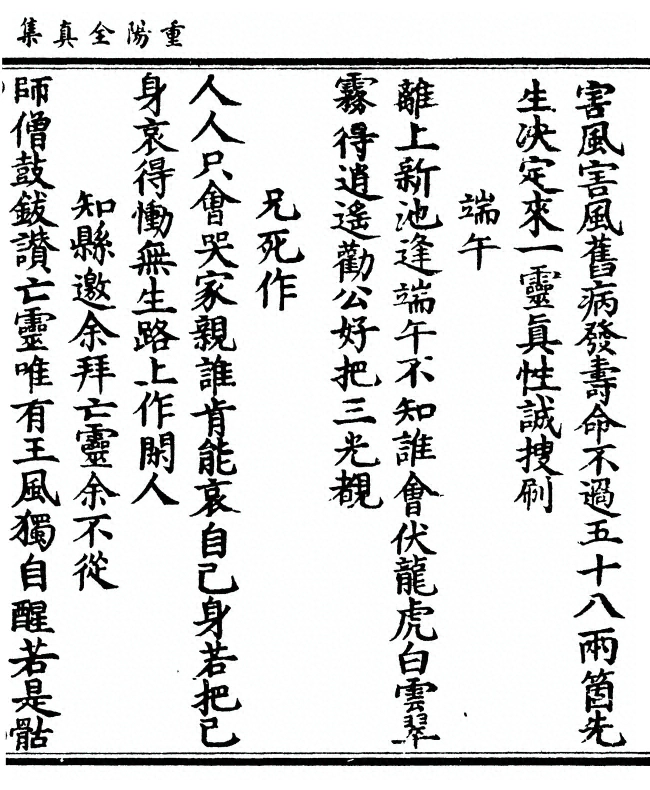 重陽全真集
害風害風舊病發壽命不過五十八兩箇先
生決定來一靈眞性誠搜刷
端午
離上新池逢端午不知誰會伏龍虎白雲翠
霧得逍遙勸公好把三光覩
兄死作
人人只會哭家親誰肯能哀自己身若把己
身哀得慟無生路上作閑人
知縣邀余拜亡靈余不從
師僧鼓鈸讚亡靈唯有王風獨自醒若是骷